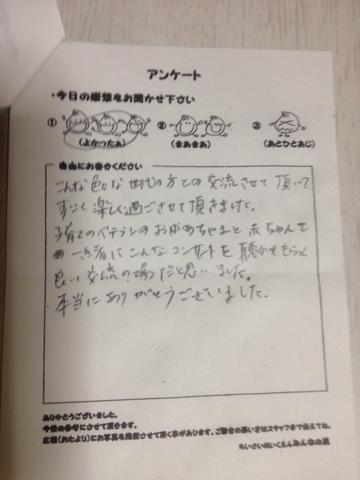 アンケート
・今日の感想をお聞かせ下さい
① ② ③
(よかったぁ) (まあまあ) (あとひとあじ)
自由にお書きください
こんな色々な世代の方との交流させて頂いて
すごく楽しく過ごさせて頂きました。
子育てのベテランのおばあちゃまと赤ちゃんで
一緒にこんなコンサートを聴かせてもらえ
良い交流の場だと思いました。
本当にありがとうございました。
ありがとうございました。
今後の参考にさせて頂きます。
広報(おたより)にお写真を掲載させて頂く事があります。ご都合の悪い方はスタッフまで伝えてね。
ちいさいほいくえんみんなの